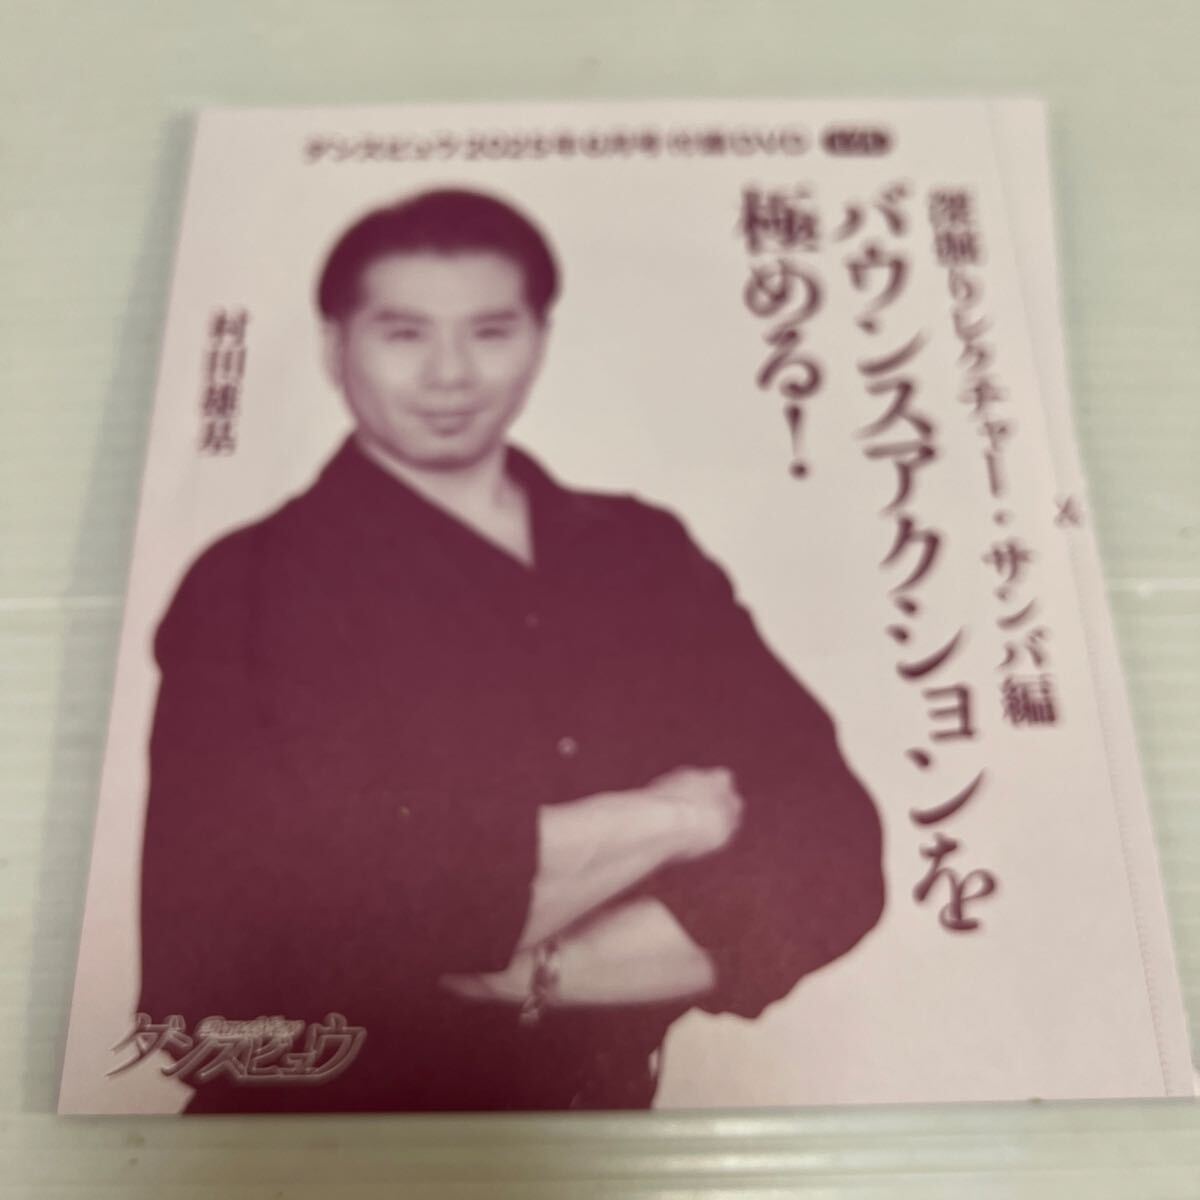 ダンスビュウ2025年6月号 付録DVD
深堀りレクチャー・サンバ編
バウンスアクションを
極める!
村田雄基
ダンスビュウ